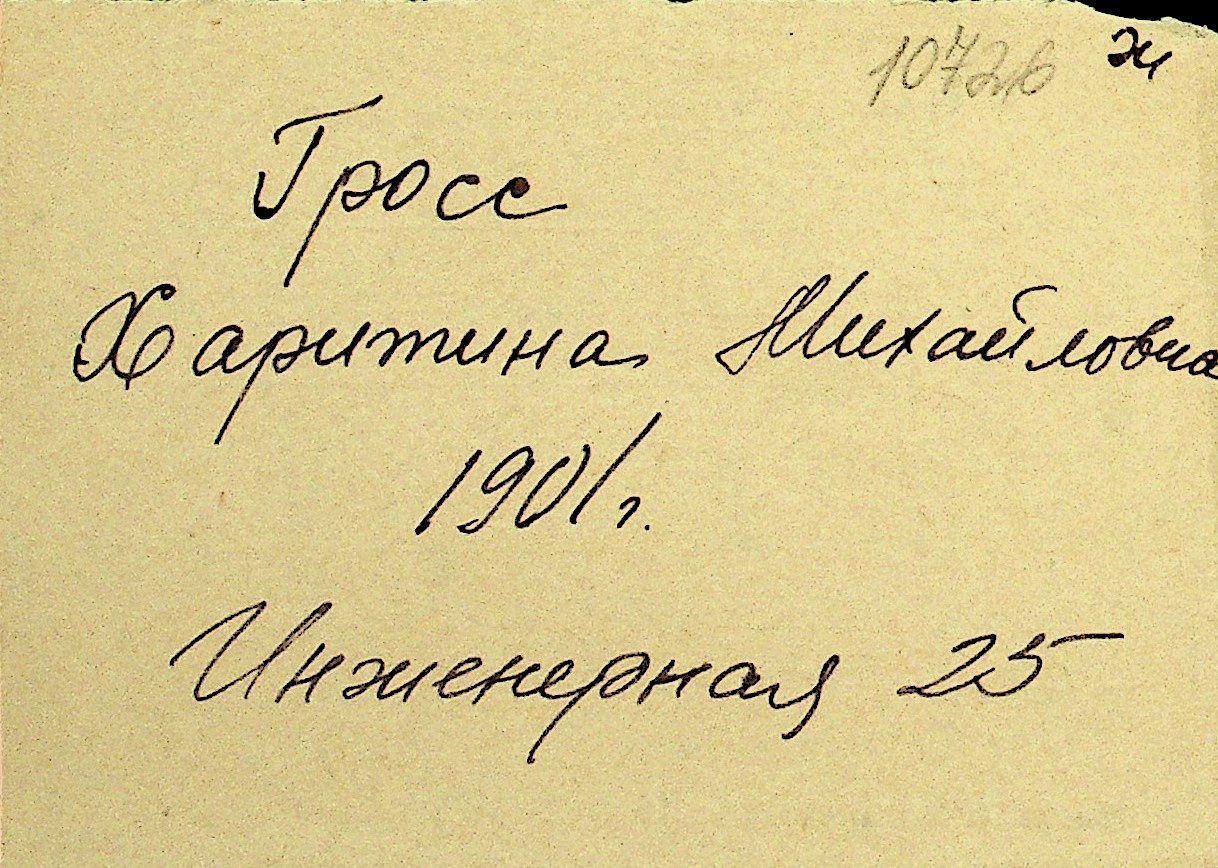 10726 ж
Гросс
Харитина Михайловна
1901 г.
Инженерная 25